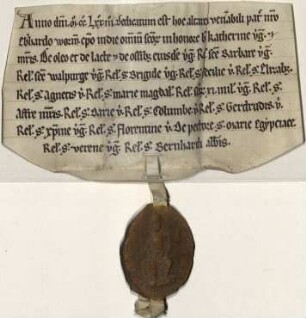 Anno dni. ɱ. cc. Lxxiii. Dedicatum est hoc altare venerabili patre nro
Ebhardo worm. epo in die omnium scor in honore bte katherine vg. et
mris. De oleo et de lacte et de ossib; eiusdē vg. Rel. sce Barbare vg.
Rel. sce walpurge vg. Rel. s. Brigide vg. Rel. s. Cecilie v. Rel. s. Elizab;.
Rel. s. Agnetis v. Rel. s. marie magdal. Rel. scr. xi. mil. vg. Rel. s.
Affre mris. Rel. s. Darie v. Rel. s. Columbe v. Rel. s. Gertrudis v.
Rel. s. xpine vg. Rel. s. Florentine v. De s. marie egyptiace.
Rel. s. verene vg. Rel. s. Bernhardi abbis.